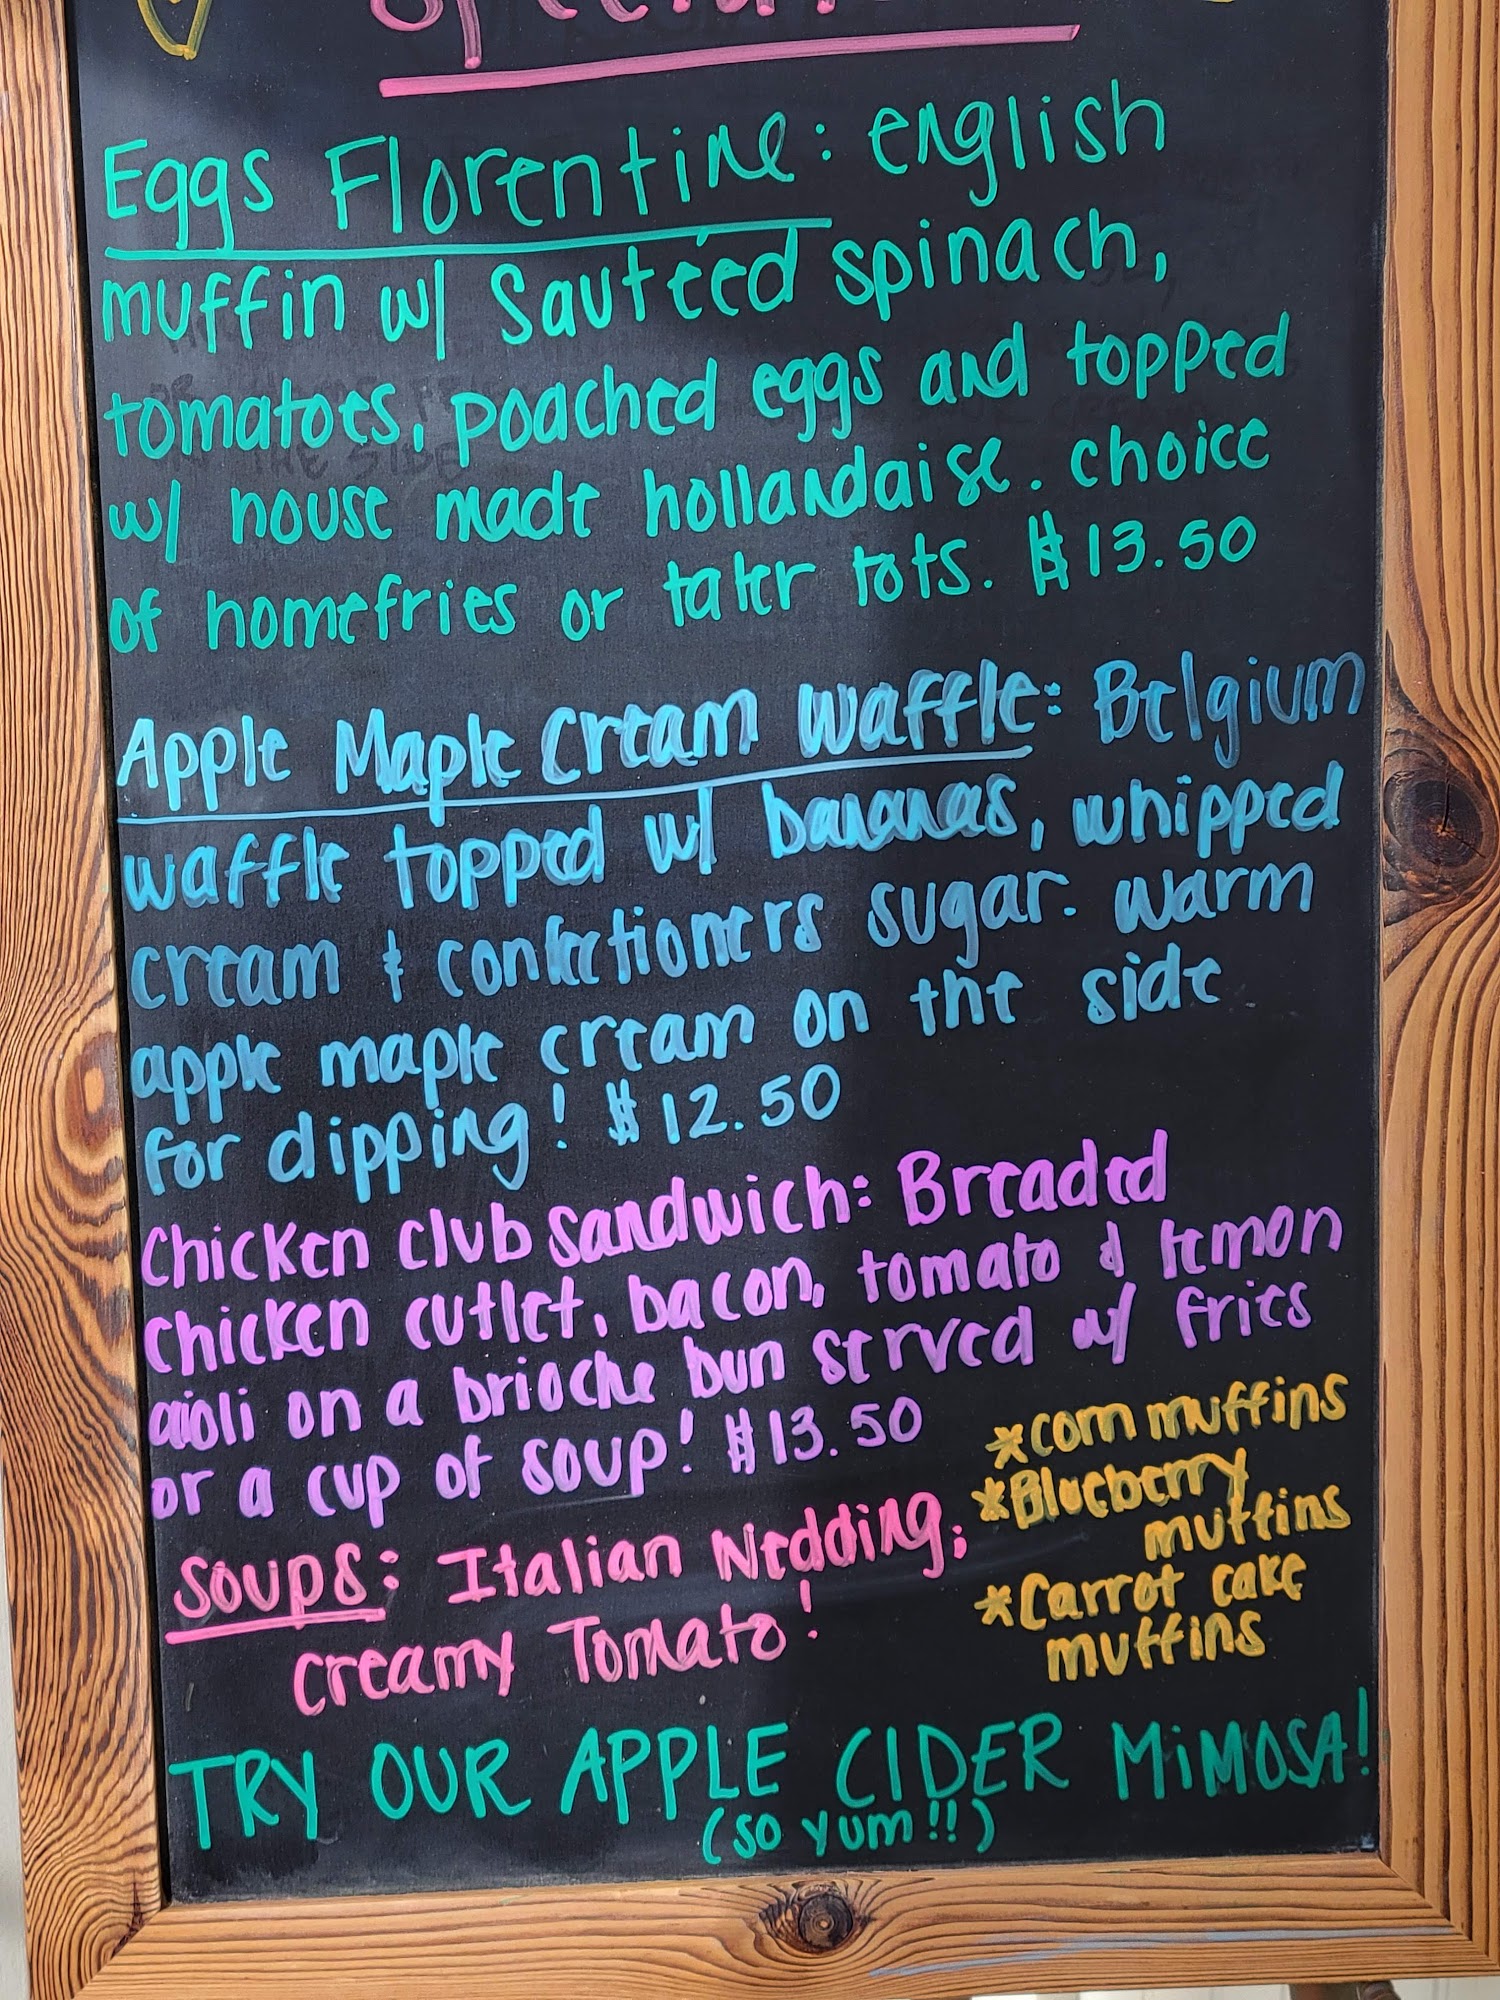 Eggs Florentine: english
muffin w/ Sautéed spinach,
tomatoes, poached eggs and topped
w/ house made hollandaise. choice
of homefries or tater tots. $13.50
Apple Maple Cream Waffle: Belgium
waffle topped w/ bananas, whipped
cream & confectioners sugar. warm
apple maple cream on the side
for dipping! $12.50
Chicken Club Sandwich: Breaded
Chicken cutlet, bacon, tomato & lemon
aioli on a brioche bun served w/ fries
or a cup of soup! $13.50
*corn muffins
*Blueberry
muffins
*Carrot cake
muffins
Soups: Italian Wedding;
Creamy Tomato!
TRY OUR APPLE CIDER MiMOSA!
(so yum!!)